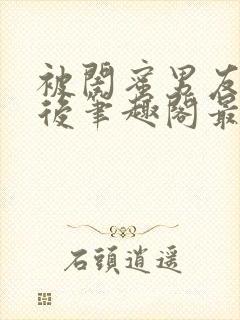 被閨蜜男友
後筆趣閣最
石頭逍遥